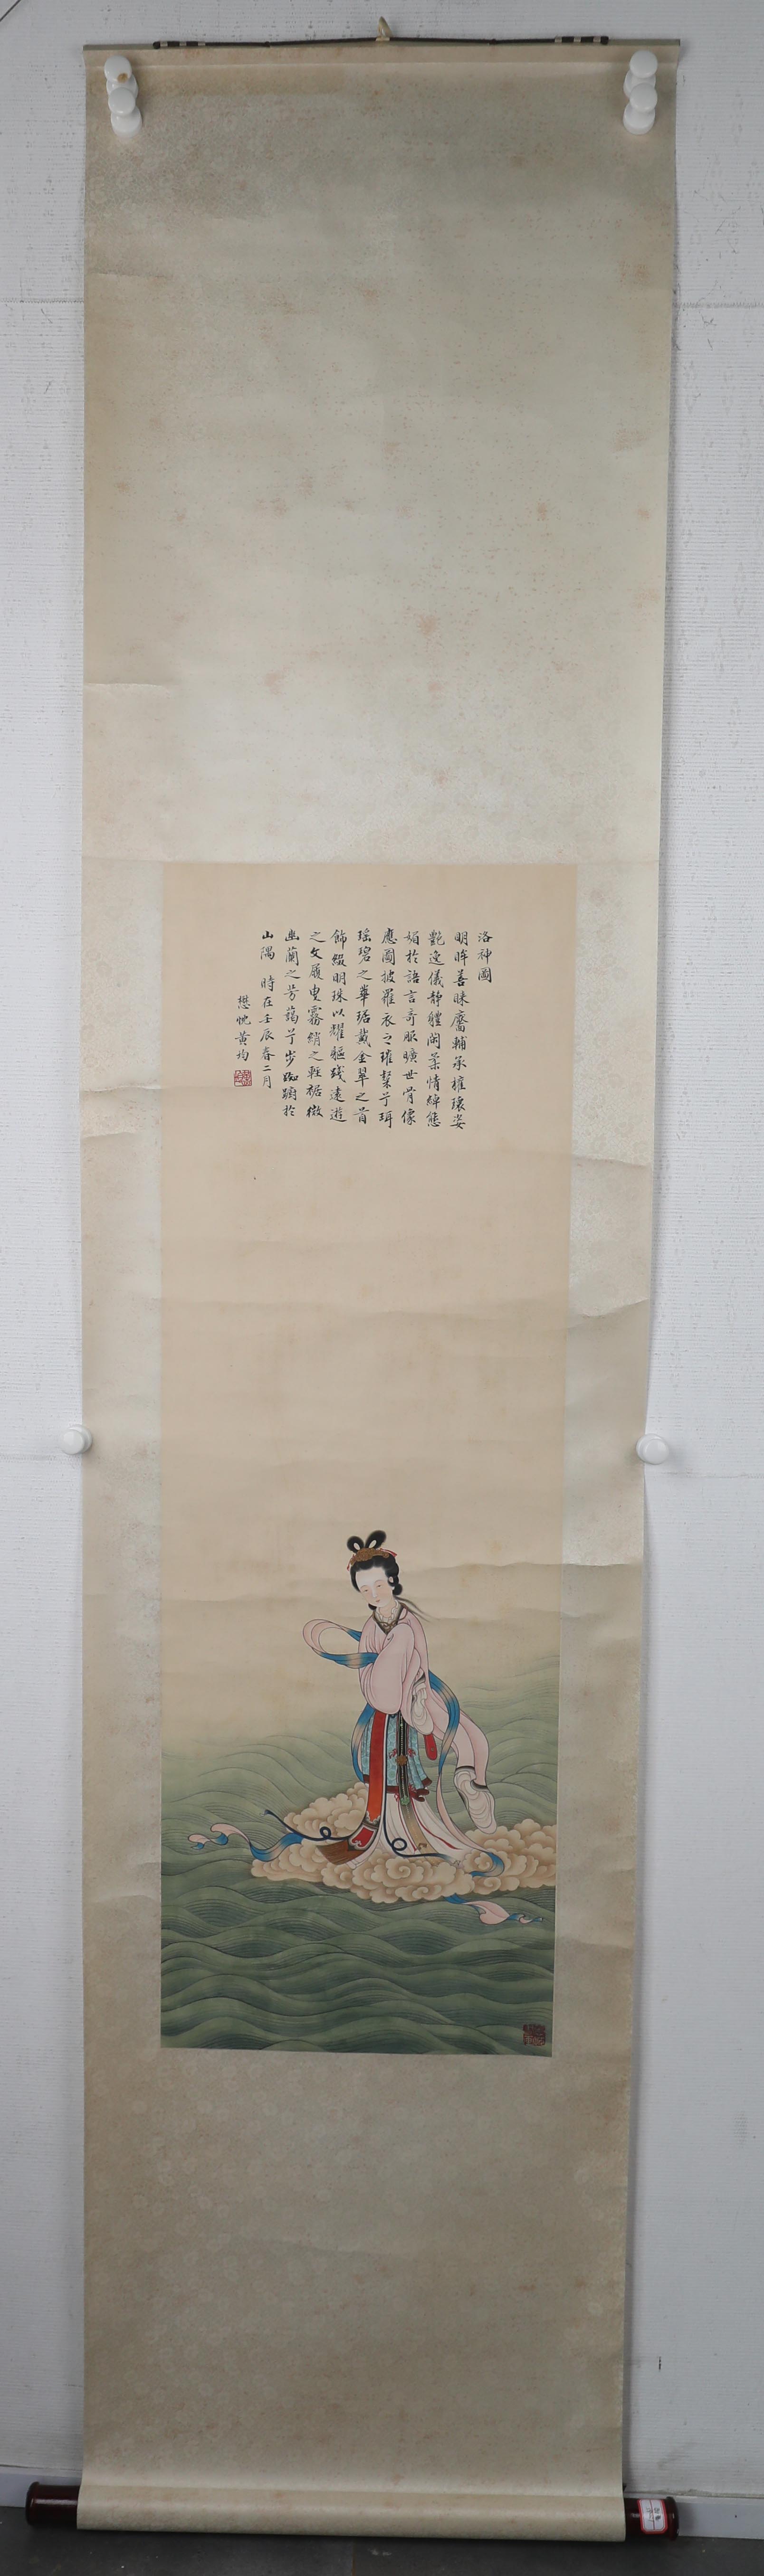 洛神圖
明眸善睞靨輔承權瓌姿
艷逸儀静體閑柔情綽態
媚於語言奇服曠世骨像
應圖披羅衣之璀粲兮珥
瑶碧之華琚戴金翠之首
飾綴明珠以耀軀踐遠遊
之文履曳霧綃之輕裾微
幽蘭之芳藹兮步踟躕於
山隅 時在壬辰春二月
懋忱黄均